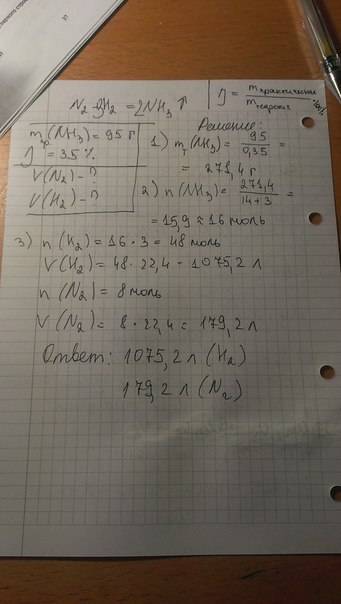 N₂ + 3H₂ = 2NH₃ ↑
η = m практическ / m теоретич · 100%
m пр (NH₃) = 95 г
η = 35 %
V(N₂) - ?
V(H₂) - ?
Решение:
1) m т (NH₃) = 95 / 0,35 =
= 271,4 г
2) n (NH₃) = 271,4 / 14+3 =
= 15,9 ≈ 16 моль
3) n (H₂) = 16 · 3 = 48 моль
V(H₂) = 48 · 22,4 = 1075,2 л
n (N₂) = 8 моль
V(N₂) = 8 · 22,4 = 179,2 л
Ответ: 1075,2 л (H₂)
179,2 л (N₂)